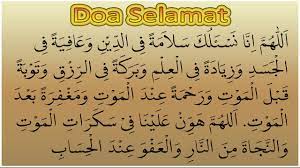 Doa Selamat
اَللّٰهُمَّ اِنَّا نَسْئَلُكَ سَلَامَةً فِى الدِّيْنِ وَعَافِيَةً فِى
الْجَسَدِ وَزِيَادَةً فِى الْعِلْمِ وَبَرَكَةً فِى الرِّزْقِ وَتَوْبَةً
قَبْلَ الْمَوْتِ وَرَحْمَةً عِنْدَ الْمَوْتِ وَمَغْفِرَةً بَعْدَ
الْمَوْتِ. اَللّٰهُمَّ هَوِّنْ عَلَيْنَا فِىْ سَكَرَاتِ الْمَوْتِ
وَالنَّجَاةَ مِنَ النَّارِ وَالْعَفْوَ عِنْدَ الْحِسَابِ